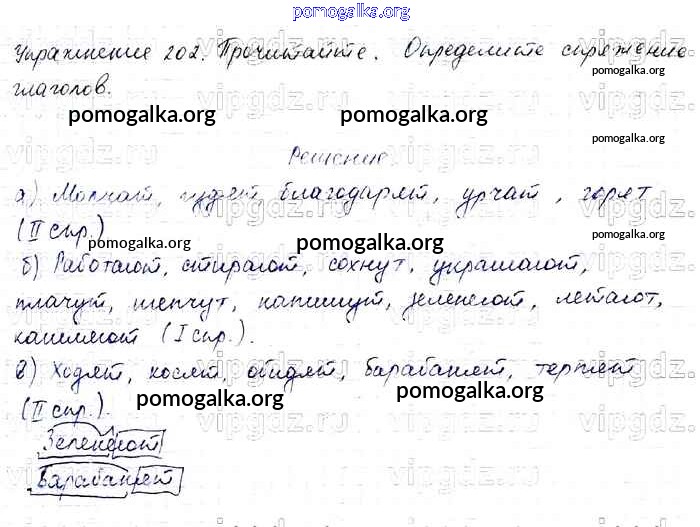 pomogalka.org
Упражнение 202. Прочитайте. Определите спряжение
глаголов.
pomogalka.org
pomogalka.org
pomogalka.org
Решение
pomogalka.org
а) Молчат, гудят, благодарят, урчат, горят
(II спр.)
pomogalka.org
pomogalka.org
pomogalka.org
б) Работают, стирают, сохнут, украшают,
плачут, шепчут, напишут, зеленеют, летают,
кашляют (I спр.).
в) Ходят, косят, обидят, барабанят, терпят
(II спр.).
pomogalka.org
pomogalka.org
pomogalka.org
Зеленеют
Барабанят
vipgdz.ru